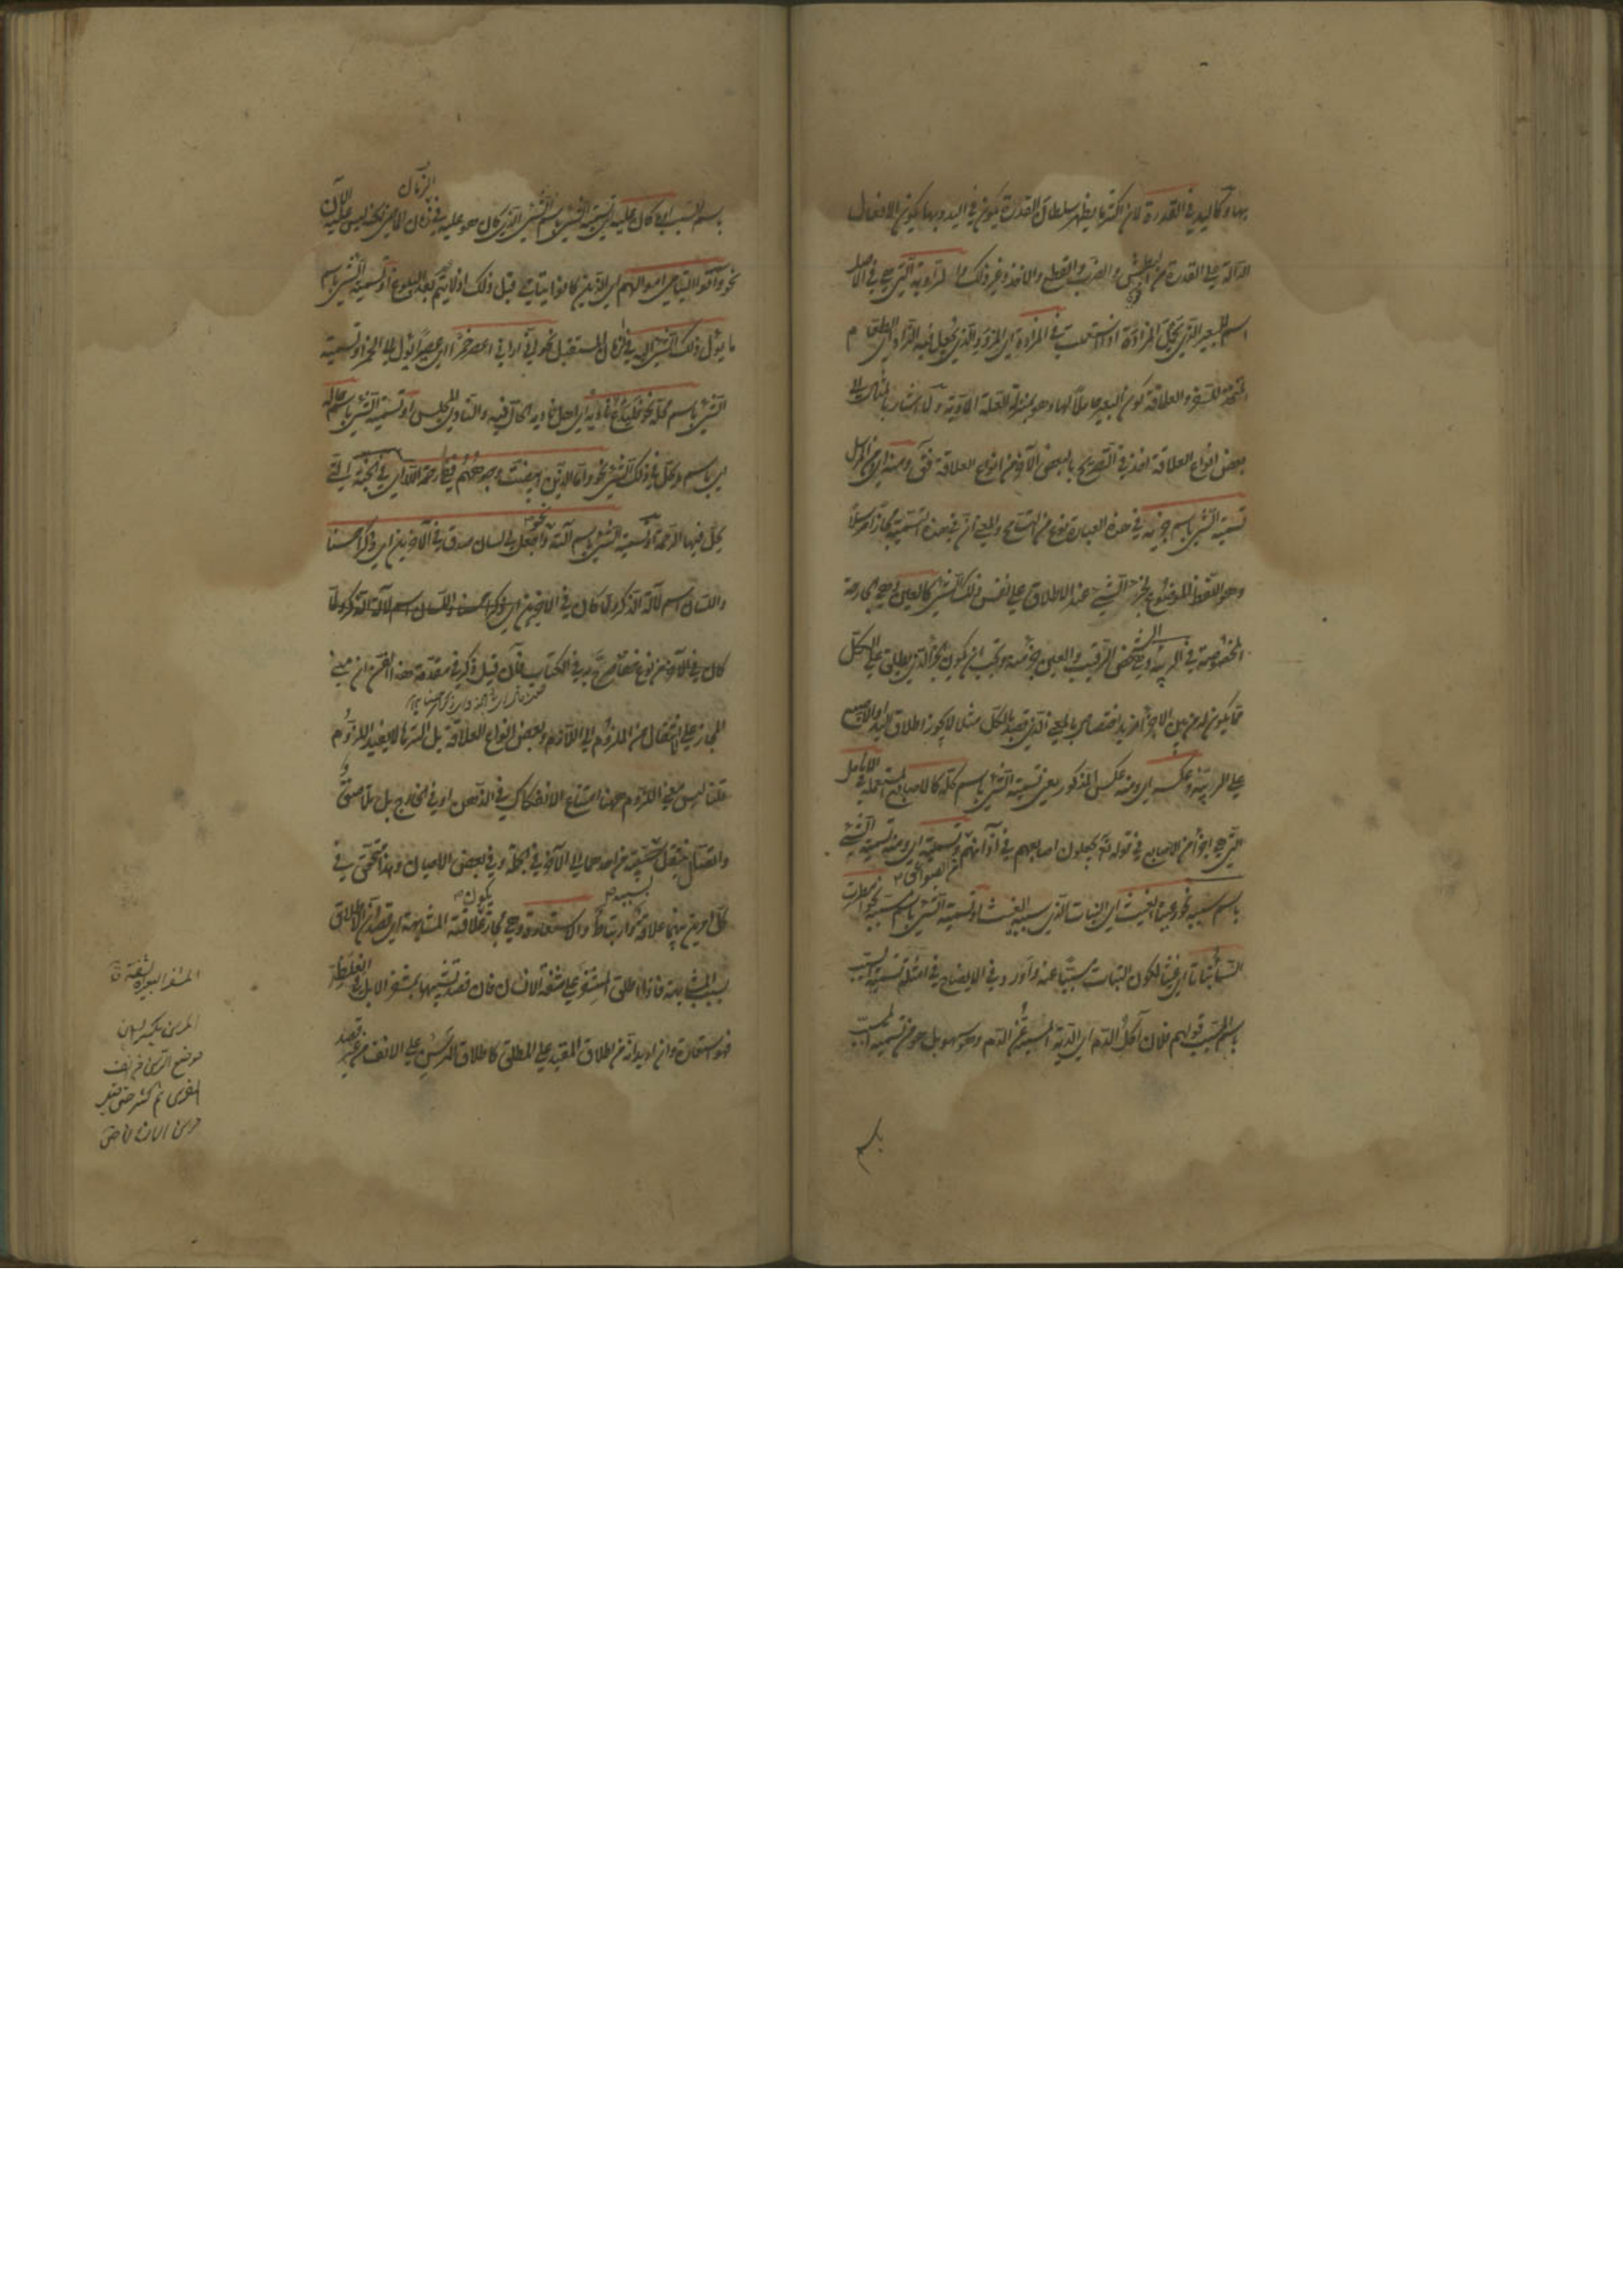 بها وكاليد في القدرة لان اكثر ما يظهر سلطان القدرة يكون في اليد وبها يكون الافعال
الدالة على القدرة من البطش والضرب والقطع والاخذ وغير ذلك والراوية التي هي في الاصل
اسم للبعير الذي يحمل المزادة اذا استعملت في المزادة اي المزود الذي يجعل فيه الزاد اي الطعام
المتخذ للسفر والعلاقة كون البعير حاملا لها وهو بمنزلة العلة المادية ولما اشار بالمثال الى
بعض انواع العلاقة اخذ في التصريح بالبعض الآخر من انواع العلاقة فقال ومنه اي من المرسل
تسمية الشئ باسم جزئه في هذه العبارة نوع من التسامح والمعنى ان في هذه التسمية مجازا مرسلا
وهو اللفظ الموضوع لجزء الشئ عند الاطلاق على نفس ذلك الشئ كالعين وهي الجارحة
المخصوصة في الربيئة وهي الشخص الرقيب والعين جزء منه ويجب ان يكون الجزء الذي يطلق على الكل
مما يكون له من بين الاجزاء مزيد اختصاص بالمعنى الذي قصد بالكل مثلا لا يجوز اطلاق اليد او الاصبع
على الربيئة وعكسه اي ومنه عكس المذكور يعني تسمية الشئ باسم كله كالاصابع المستعملة في الانامل
التي هي اجزاء من الاصابع في قوله تع يجعلون اصابعهم في آذانهم من الصواعق وتسميته اي ومنه تسمية الشئ
باسم سببه نحو رعينا الغيث اي النبات الذي سببه الغيث او تسمية الشئ باسم مسببه نحو امطرت
السماء نباتا اي غيثا لكون النبات مسببا عنه واورد في الايضاح في امثلة تسمية السبب
باسم المسبب قولهم فلان اكل الدم اي الدية المسببة عن الدم وهو سهو بل هو من تسمية المسبب
باسم
باسم السبب او ما كان عليه اي تسمية الشئ باسم الشئ الذي كان هو عليه في الزمان الماضي لكنه ليس عليه الآن
نحو وآتوا اليتامى اموالهم اي الذين كانوا يتامى قبل ذلك اذ لا يتم بعد البلوغ او تسمية الشئ باسم
ما يؤل ذلك الشئ اليه في الزمان المستقبل نحو اني اراني اعصر خمرا اي عصيرا يؤل الى الخمر او تسمية
الشئ باسم محله نحو فليدع ناديه اي اهل ناديه الحال فيه والنادي المجلس او تسمية الشئ باسم حاله
اي باسم ما يحل في ذلك الشئ نحو واما الذين ابيضت وجوههم ففي رحمة الله اي في الجنة التي
يحل فيها الرحمة او تسمية الشئ باسم آلته نحو واجعل لي لسان صدق في الآخرين اي ذكرا حسنا
واللسان اسم لآلة الذكر ولما كان في الاخيرين
كان في الآخرين نوع خفاء صرح به في الكتاب فان قيل ذكر في مقدمة هذا الفن ان مبنى
المجاز على الانتقال من الملزوم الى اللازم وبعض انواع العلاقة بل اكثرها لا يفيد اللزوم
قلنا ليس معنى اللزوم ههنا امتناع الانفكاك في الذهن او في الخارج بل تلاصق
واتصال ينتقل بسببه من احدهما الى الآخر في الجملة وفي بعض الاحيان وهذا متحقق في
كل امرين بينهما علاقة وارتباط والاستعارة وهي مجاز يكون علاقته المشابهة اي قصد ان الاطلاق
بسبب المشابهة فاذا اطلق المشفر على شفة الانسان فان قصد تشبيهها بمشفر الابل في الغلظ
فهو استعارة وان اريد انه من اطلاق المقيد على المطلق كاطلاق المرسن على الانف من غير قصد
المرسن بكسر السين
موضع الرسن من انف
الفرس ثم كثر حتى قيل
مرسن الانسان